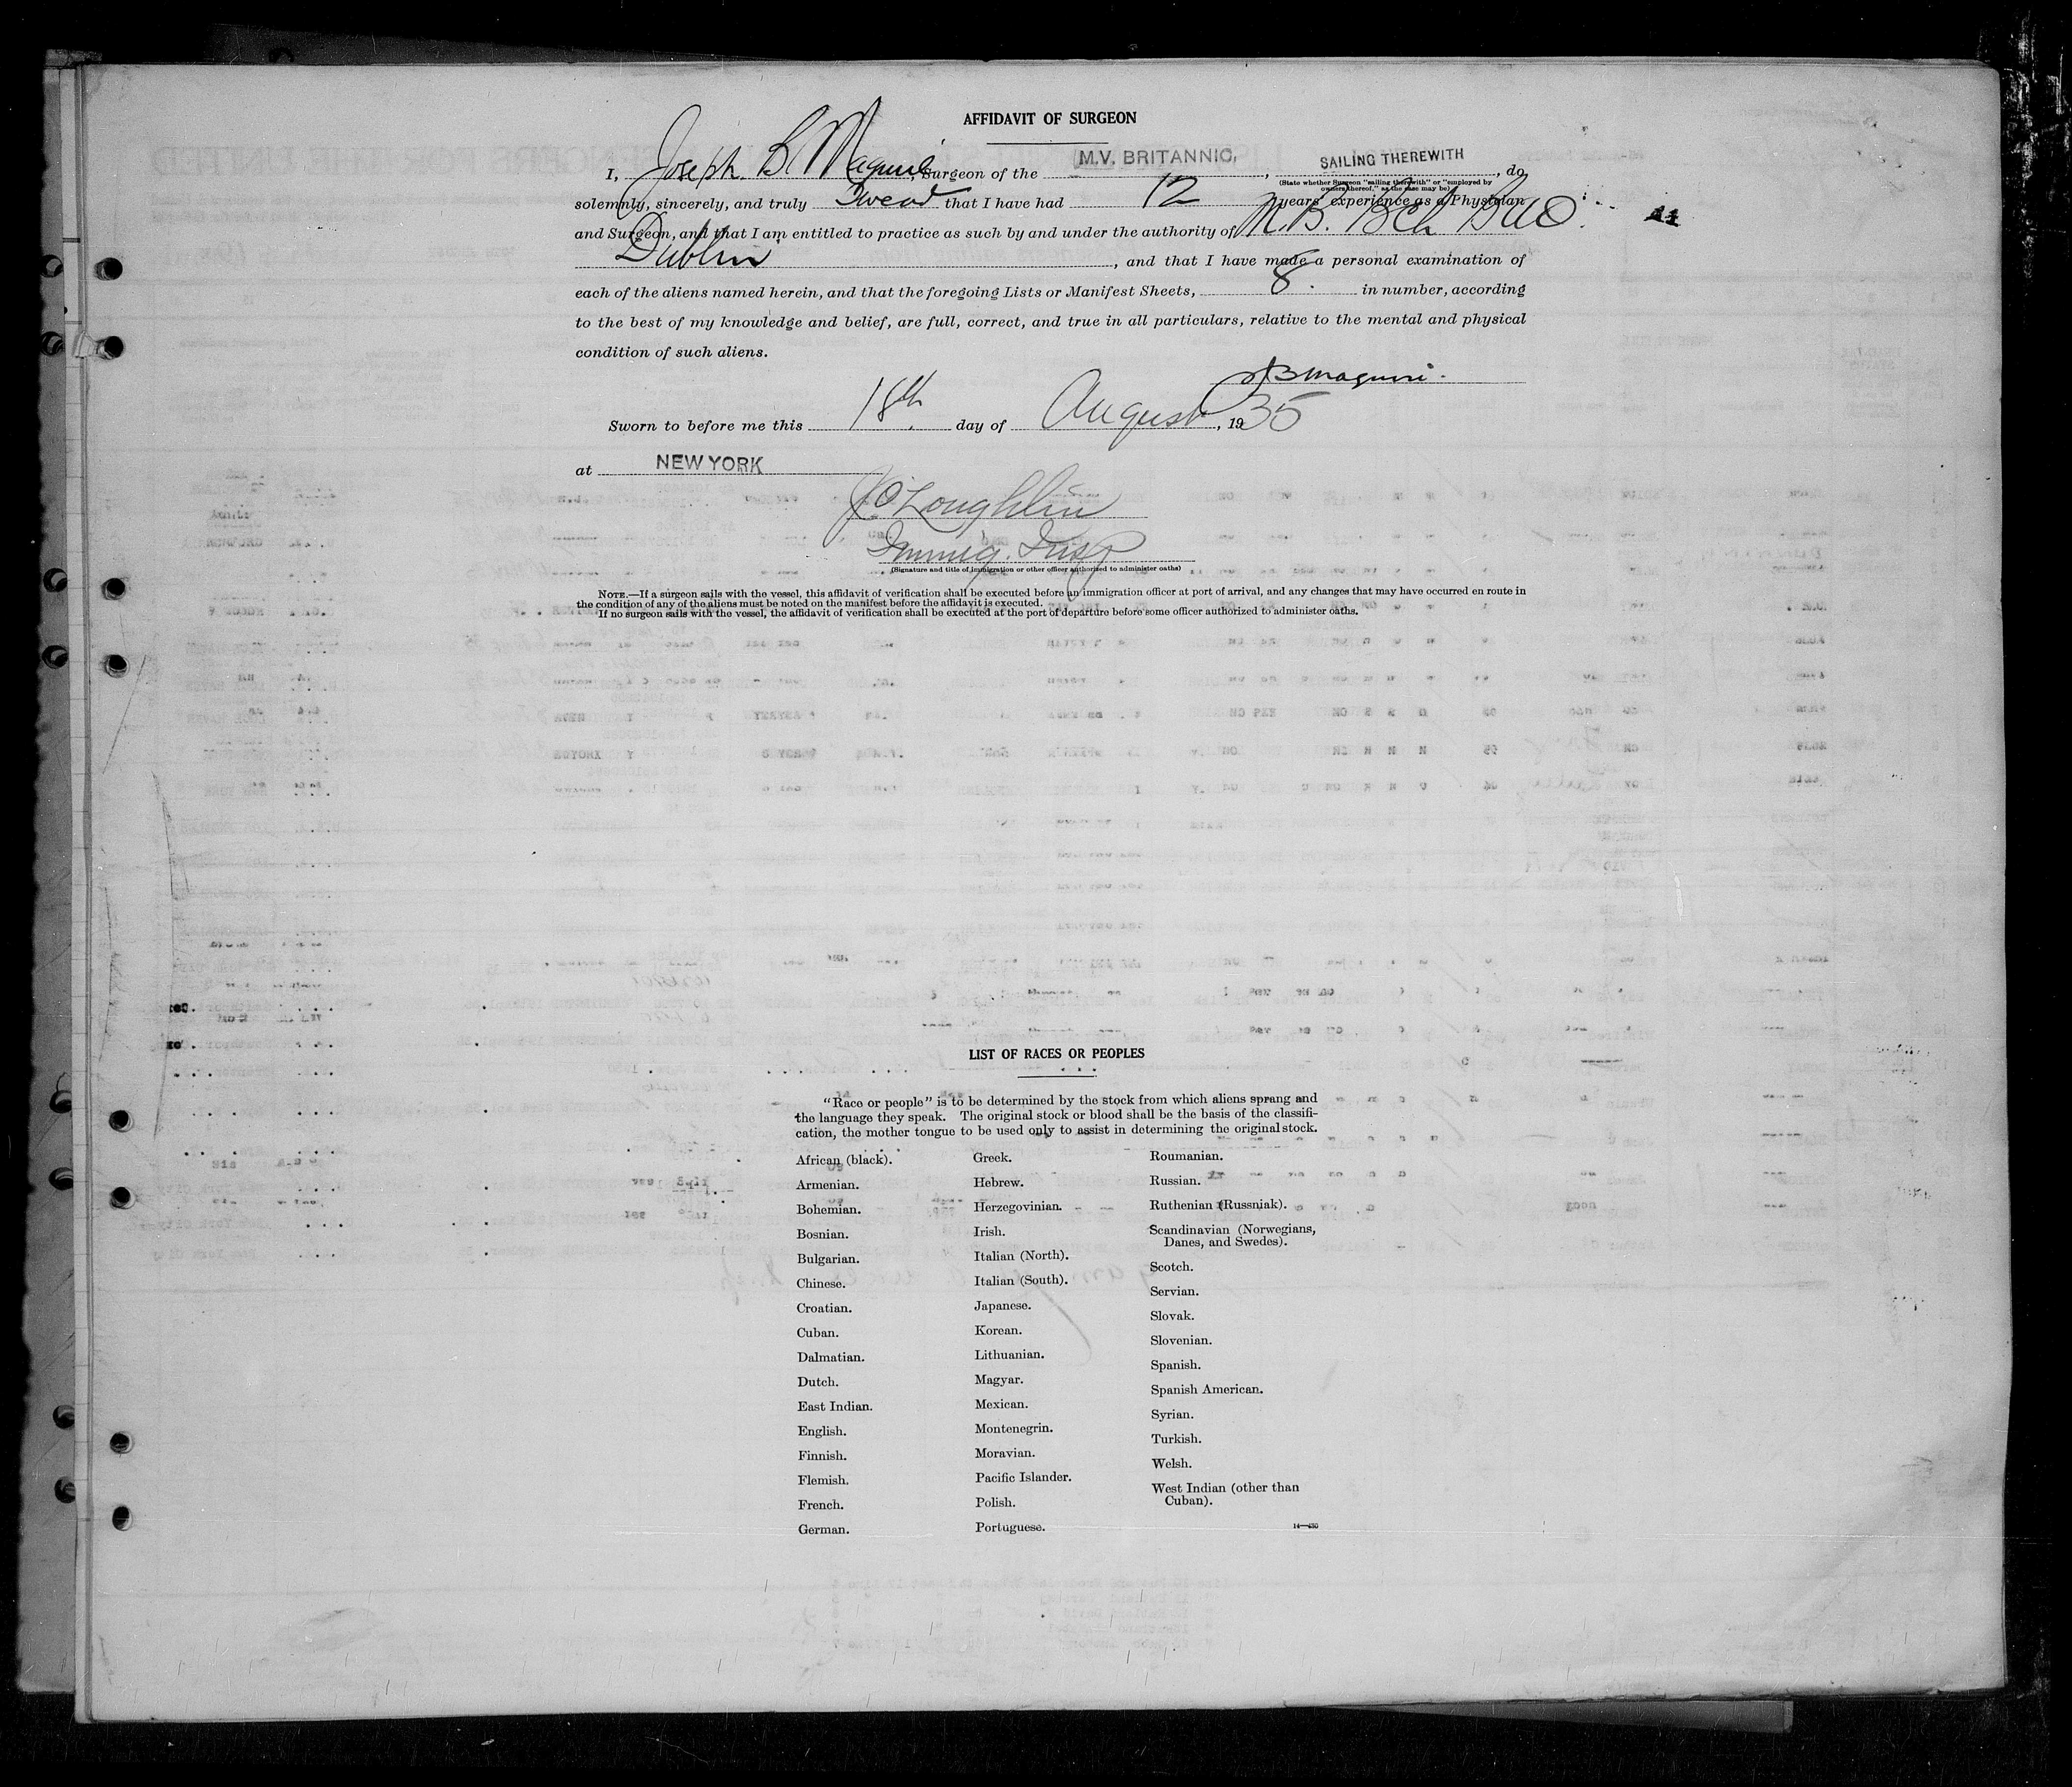 AFFIDAVIT OF SURGEON
I, Joseph B Maguire, Surgeon of the M.V. BRITANNIC, , SAILING THEREWITH , do
(State whether Surgeon "sailing therewith" or "employed by
owners thereof," as the case may be)
solemnly, sincerely, and truly Swear that I have had 12 years' experience as a Physician
and Surgeon, and that I am entitled to practice as such by and under the authority of M.B. BCh BAO. 11
Dublin , and that I have made a personal examination of
each of the aliens named herein, and that the foregoing Lists or Manifest Sheets, 8. in number, according
to the best of my knowledge and belief, are full, correct, and true in all particulars, relative to the mental and physical
condition of such aliens.
JBMaguire.
Sworn to before me this 18th. day of August, 1935
at NEW YORK
J O'Loughlin
Immig. Insp
(Signature and title of immigration or other officer authorized to administer oaths)
NOTE.—If a surgeon sails with the vessel, this affidavit of verification shall be executed before an immigration officer at port of arrival, and any changes that may have occurred en route in
the condition of any of the aliens must be noted on the manifest before the affidavit is executed.
If no surgeon sails with the vessel, the affidavit of verification shall be executed at the port of departure before some officer authorized to administer oaths.
LIST OF RACES OR PEOPLES
"Race or people" is to be determined by the stock from which aliens sprang and
the language they speak. The original stock or blood shall be the basis of the classifi-
cation, the mother tongue to be used only to assist in determining the original stock.
African (black).
Armenian.
Bohemian.
Bosnian.
Bulgarian.
Chinese.
Croatian.
Cuban.
Dalmatian.
Dutch.
East Indian.
English.
Finnish.
Flemish.
French.
German.
Greek.
Hebrew.
Herzegovinian.
Irish.
Italian (North).
Italian (South).
Japanese.
Korean.
Lithuanian.
Magyar.
Mexican.
Montenegrin.
Moravian.
Pacific Islander.
Polish.
Portuguese.
Roumanian.
Russian.
Ruthenian (Russniak).
Scandinavian (Norwegians,
Danes, and Swedes).
Scotch.
Servian.
Slovak.
Slovenian.
Spanish.
Spanish American.
Syrian.
Turkish.
Welsh.
West Indian (other than
Cuban).